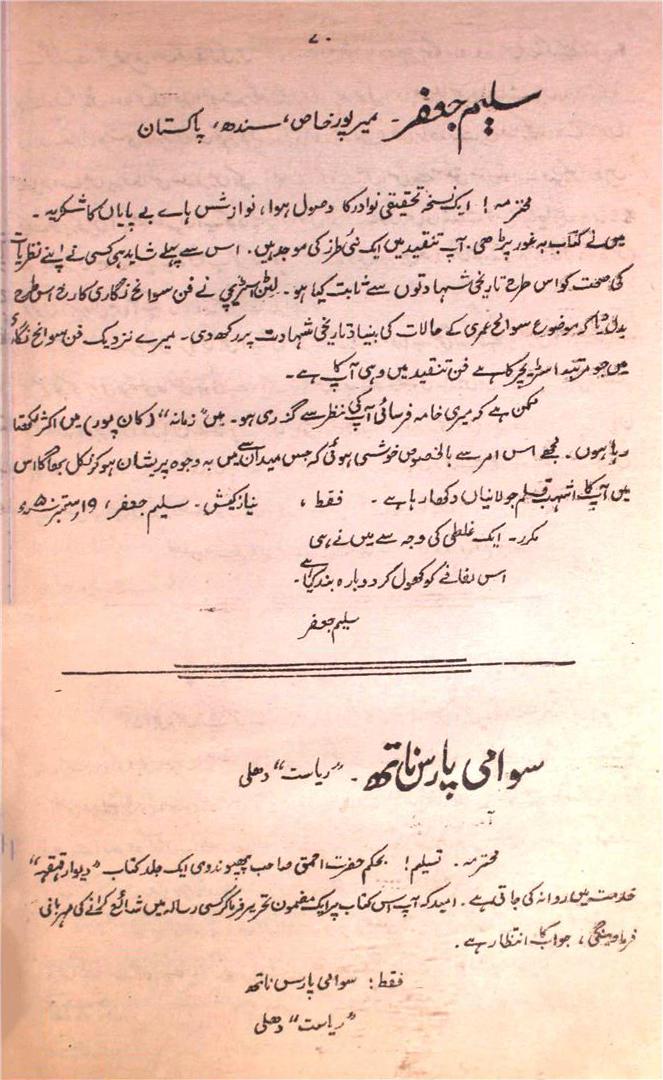 ۷۰
سلیم جعفر۔ میرپور خاص، سندھ، پاکستان
محترمہ! ایک نسخہ تحقیقی نوادر کا وصول ہوا، نوازش ہاے بے پایاں کا شکریہ۔
میں نے کتاب بہ غور پڑھی۔ آپ تنقید میں ایک نئی طرز کی موجد ہیں۔ اس سے پہلے شاید ہی کسی نے اپنے نظریات
کی صحت کو اس طرح تاریخی شہادتوں سے ثابت کیا ہو۔ لیٹن اسٹریچی نے فن سوانح نگاری کا رخ اس طرح
بدل دیا کہ موضوع سوانح عمری کے حالات کی بنیاد تاریخی شہادت پر رکھ دی۔ میرے نزدیک فن سوانح نگاری
میں جو مرتبہ اسٹریچی کا ہے فن تنقید میں وہی آپ کا ہے۔
ممکن ہے کہ میری خامہ فرسائی آپ کی نظر سے گذری ہو۔ میں "زمانہ" (کان پور) میں اکثر لکھتا
رہا ہوں۔ مجھے اس امر سے بالخصوص خوشی ہوئی کہ جس میدان سے میں بہ وجوہ پریشان ہو کر نکل بھاگا اس
میں آپ کا اشہب قلم جولانیاں دکھا رہا ہے۔ فقط، نیاز کیش۔ سلیم جعفر، ۱۹ ستمبر ۵۰ء
مکرر۔ ایک غلطی کی وجہ سے میں نے ہی
اس لفافے کو کھول کر دوبارہ بند کیا ہے۔
سلیم جعفر
سوامی پارس ناتھ۔ "ریاست" دھلی
محترمہ۔ تسلیم! بحکم حضرت احمق صاحب پھپھوندوی ایک جلد کتاب "دیوار قہقہہ"
خدمت میں روانہ کی جاتی ہے۔ امید کہ آپ اس کتاب پر ایک مضمون تحریر فرما کر کسی رسالہ میں شائع کرانے کی مہربانی
فرماوینگی، جواب کا انتظار ہے۔
فقط: سوامی پارس ناتھ
"ریاست" دھلی